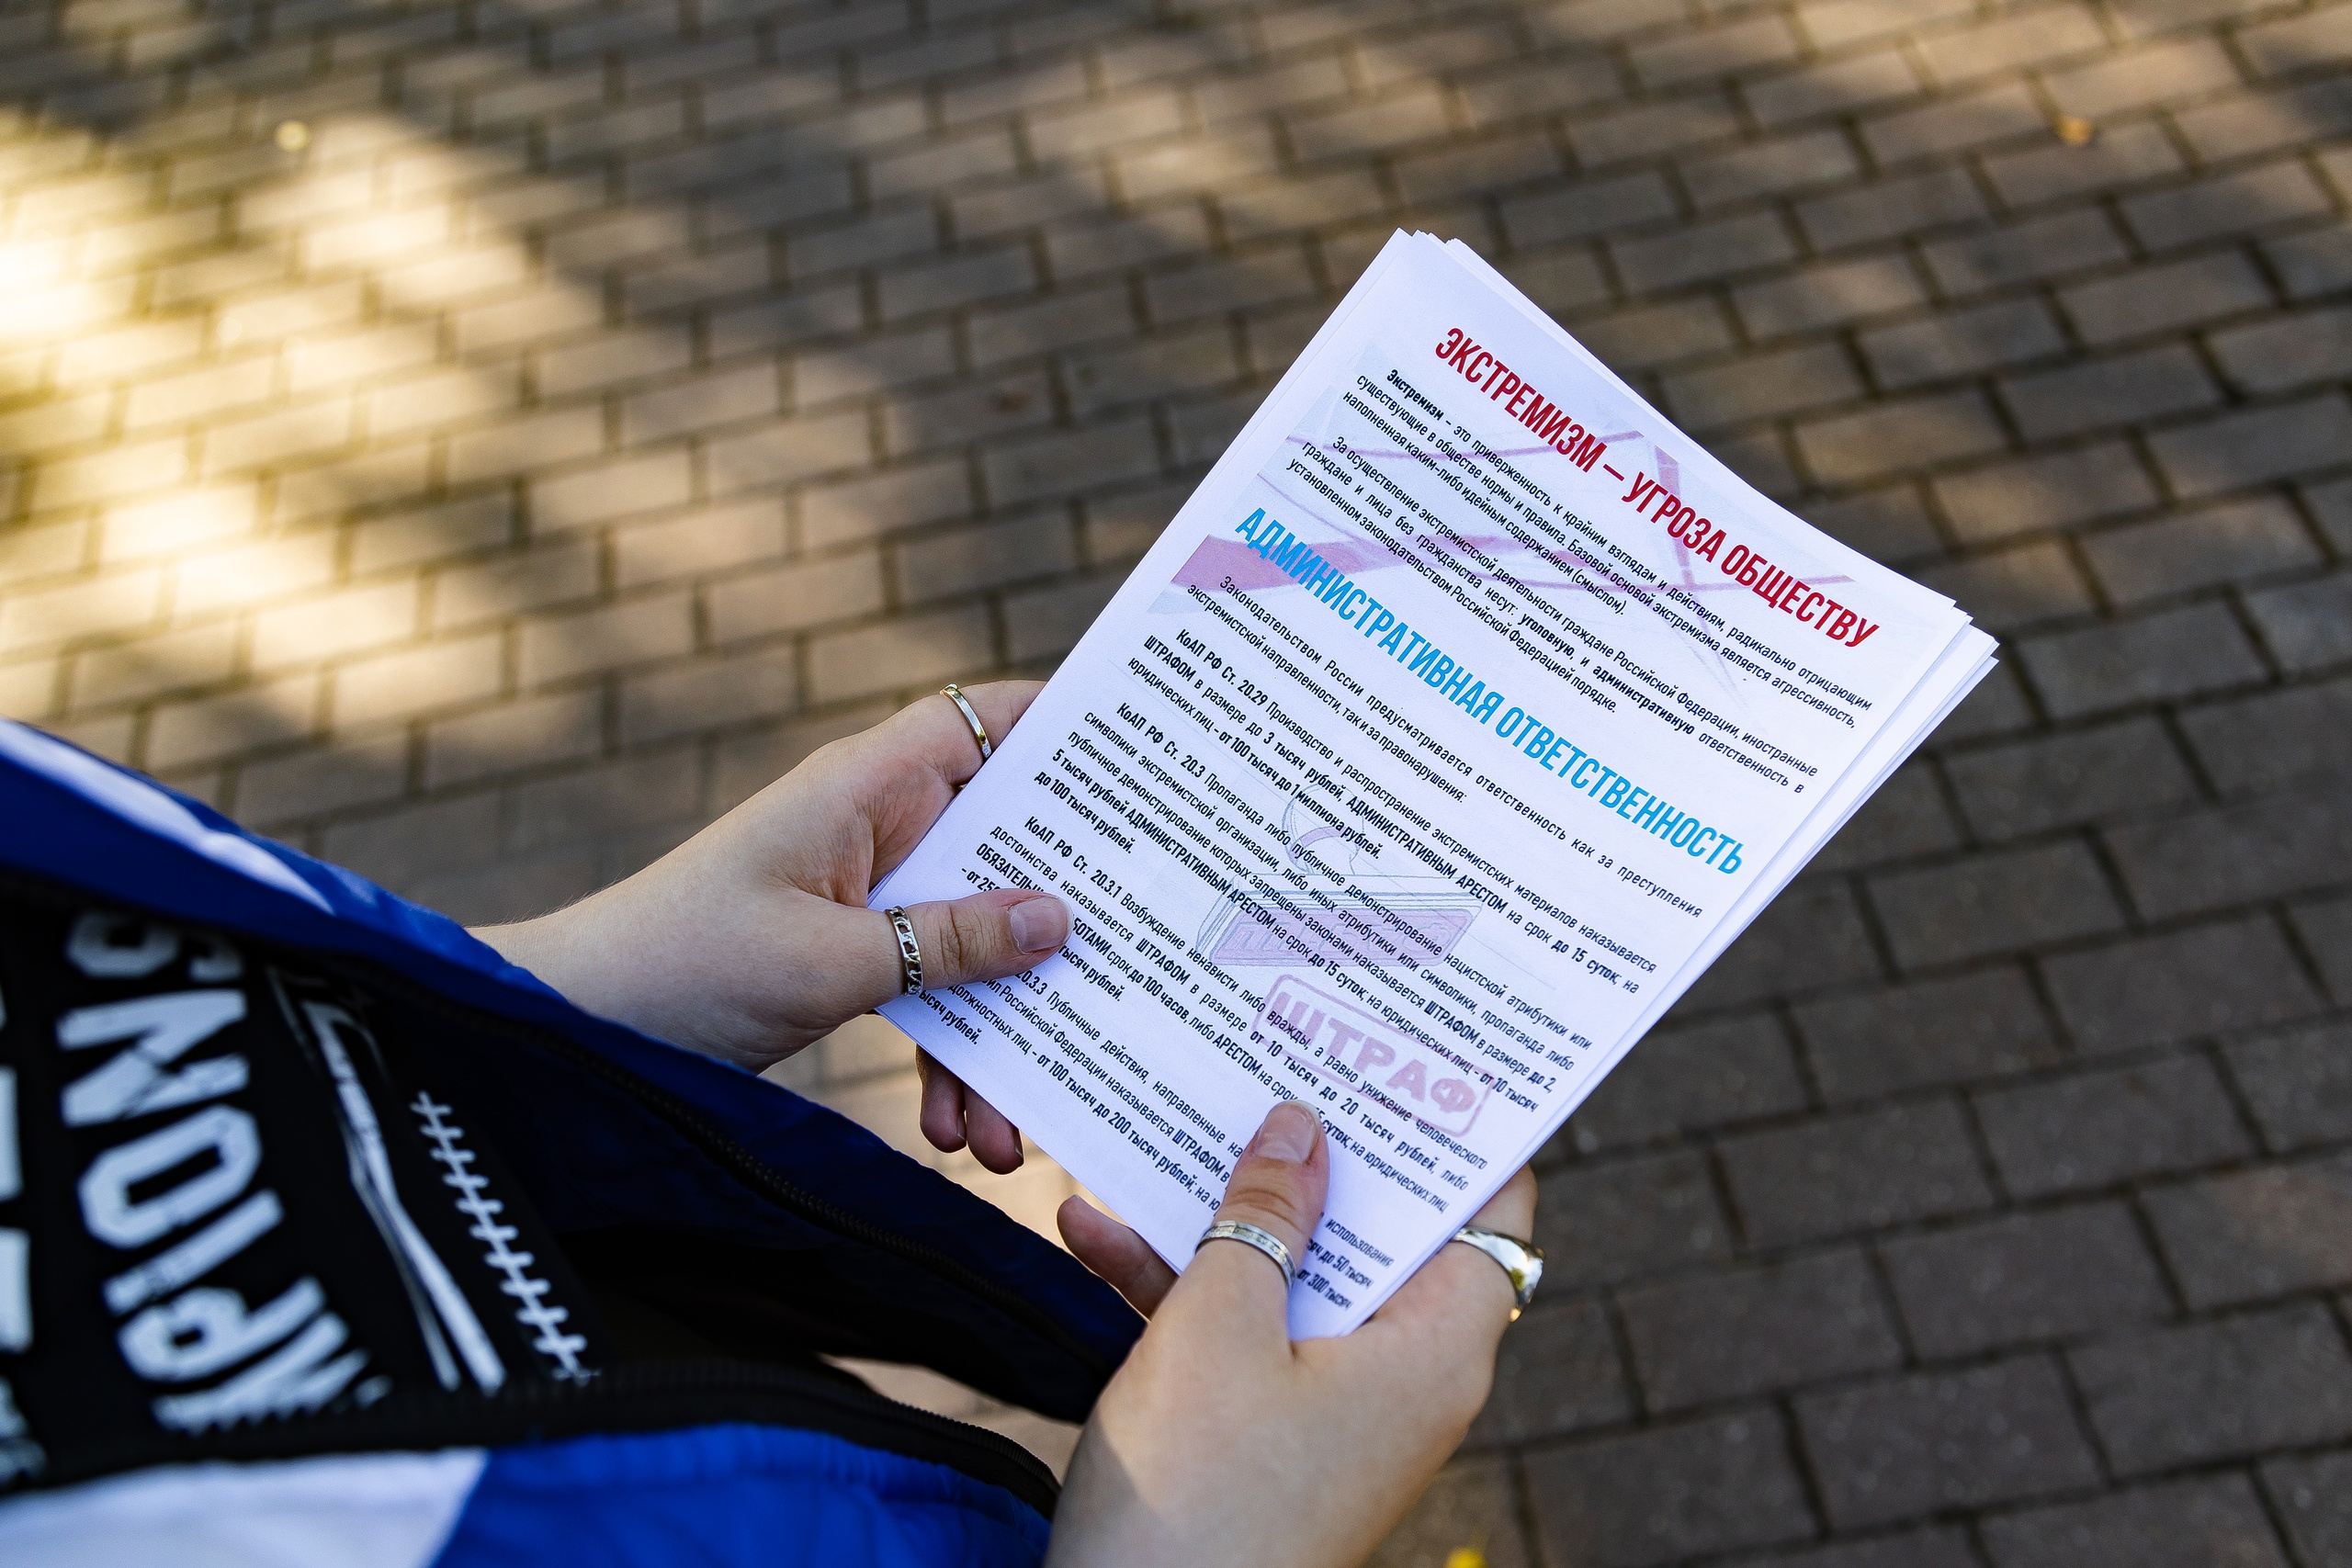 ЭКСТРЕМИЗМ — УГРОЗА ОБЩЕСТВУ
Экстремизм – это приверженность к крайним взглядам и действиям, радикально отрицающим
существующие в обществе нормы и правила. Базовой основой экстремизма является агрессивность,
наполненная каким-либо идейным содержанием (смыслом).
За осуществление экстремистской деятельности граждане Российской Федерации, иностранные
граждане и лица без гражданства несут: уголовную, и административную ответственность в
установленном законодательством Российской Федерацией порядке.
АДМИНИСТРАТИВНАЯ ОТВЕТСТВЕННОСТЬ
Законодательством России предусматривается ответственность как за преступления
экстремистской направленности, так и за правонарушения:
КоАП РФ Ст. 20.29 Производство и распространение экстремистских материалов наказывается
ШТРАФОМ в размере до 3 тысяч рублей, АДМИНИСТРАТИВНЫМ АРЕСТОМ на срок до 15 суток; на
юридических лиц - от 100 тысяч до 1 миллиона рублей.
КоАП РФ Ст. 20.3 Пропаганда либо публичное демонстрирование нацистской атрибутики или
символики экстремистской организации, либо иных атрибутики или символики, пропаганда либо
публичное демонстрирование которых запрещены законами наказывается ШТРАФОМ в размере до 2,
5 тысяч рублей АДМИНИСТРАТИВНЫМ АРЕСТОМ на срок до 15 суток; на юридических лиц - от 10 тысяч
до 100 тысяч рублей.
КоАП РФ Ст. 20.3.1 Возбуждение ненависти либо вражды, а равно унижение человеческого
достоинства наказывается ШТРАФОМ в размере от 10 тысяч до 20 тысяч рублей, либо
БОТАМИ срок до 100 часов, либо АРЕСТОМ на срок суток; на юридических лиц
тысяч рублей.
20.3.3 Публичные действия, направленные на использования
Российской Федерации наказывается ШТРАФОМ в до 50 тысяч
должностных лиц - от 100 тысяч до 200 тысяч рублей; на от 300 тысяч
рублей.
ШТРАФ